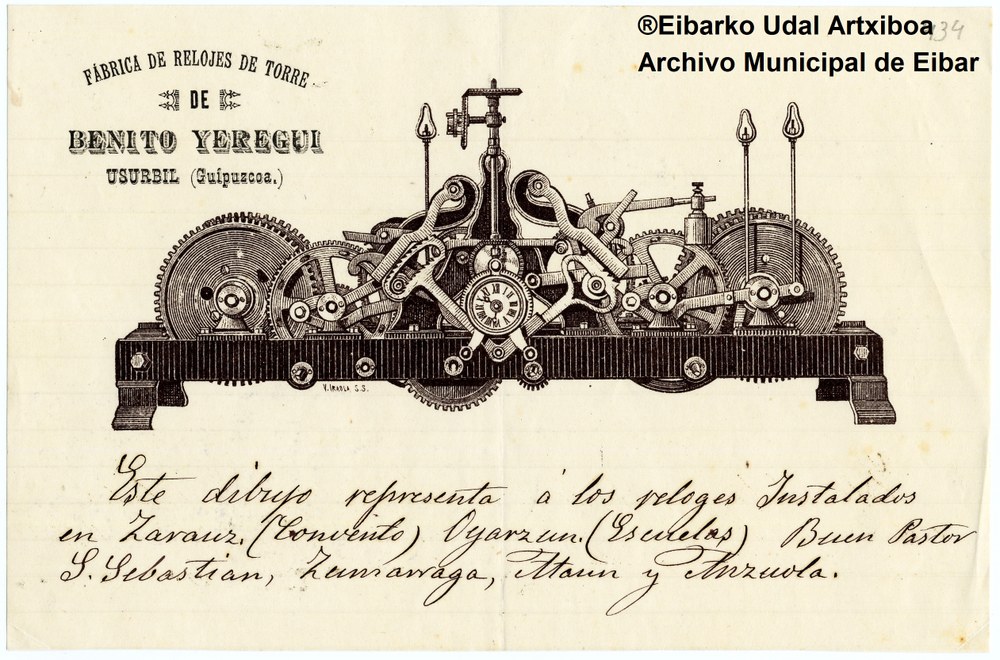 ®Eibarko Udal Artxiboa
134
Archivo Municipal de Eibar
FÁBRICA DE RELOJES DE TORRE
DE
BENITO YEREGUI
USURBIL (Guipuzcoa.)
V. IRAOLA S.S.
Este dibujo representa á los reloges Instalados
en Zarauz. (Convento) Oyarzun. (Escuelas) Buen Pastor
S. Sebastian, Zumarraga, Ataun y Anzuola.